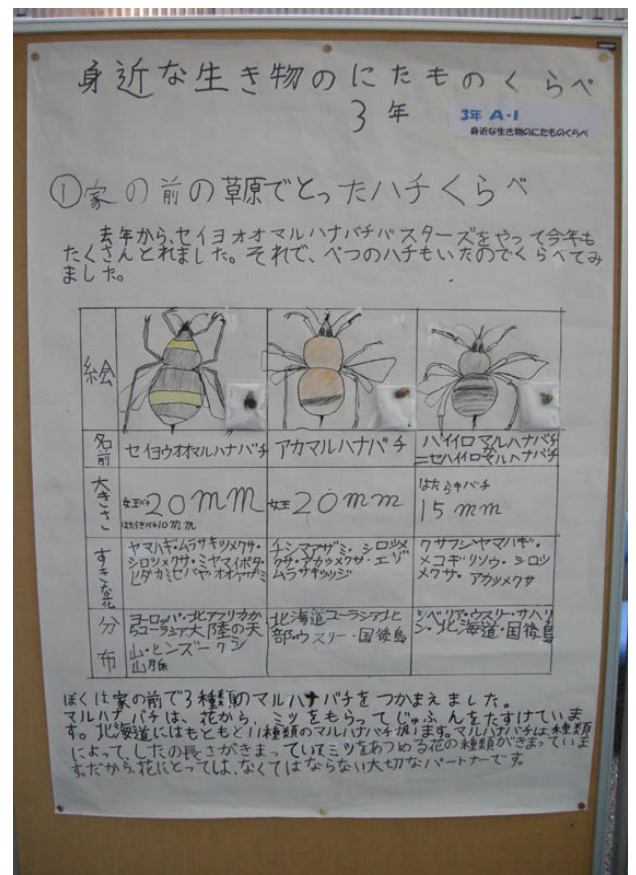 身近な生き物のにたものくらべ
3年
3年 A・1
身近な生き物のにたものくらべ
①家の前の草原でとったハチくらべ
去年から、セイヨオオマルハナバチバスターズをやって今年も
たくさんとれました。それで、べつのハチもいたのでくらべてみ
ました。
絵
名前
セイヨウオオマルハナバチ
アカマルハナバチ
ハイイロマルハナバチ
か
ニセハイイロマルハナバチ
大きさ
女王バチ20mm
はたらきバチ10mm
女王20mm
はたらきバチ
15mm
すきな花
ヤマハギ・ムラサキツメクサ・
シロツメクサ・ミヤマイボタ・
ヒダカミセバヤ・オオヤザミ
チシマアザミ・シロツメ
クサ・アカツメクサ・エゾ
ムラサキツツジ
クサフジヤマハギ・
メコギリソウ・シロツ
メクサ・アカツメクサ
分布
ヨーロッパ・北アフリカか
らユーラシア大陸の天
山・ヒンズークシ
山脈
北海道ユーラシア北
部・ウスリー・国後島
シベリア・ウスリー・サハリ
ン・北海道・国後島
ぼくは家の前で3種類のマルハナバチをつかまえました。
マルハナバチは、花から、ミツをもらってじゅふんをたすけていま
す。北海道にはもともと11種類のマルハナバチがいます。マルハナバチは種類
によって、したの長さがきまっていてミツをあつめる花の種類がきまっていま
す。だから、花にとっては、なくてはならない大切なパートナーです。